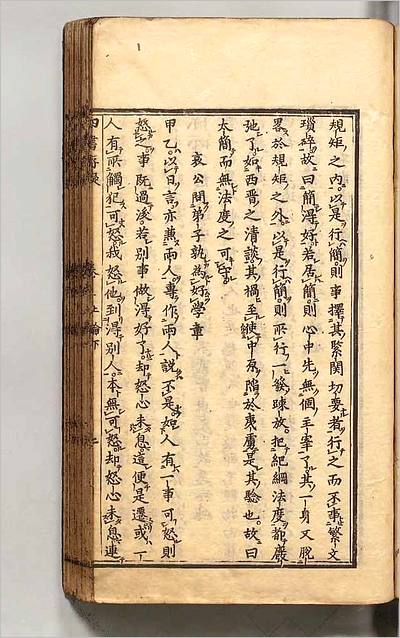 規矩之内以是行簡則事擇其緊関切要者行之而不事繁文
瑣碎故曰簡得好若居簡則心中先無個主宰了其一身又脫
畧於規矩之外以是行簡則所行一發踈放把紀綱法度都廢
弛了如西晋之清談其禍至使中原陥於夷虜是其驗也故曰
太簡而無法度之可守
哀公問弟子孰為好學章
甲乙以日言亦兼兩人專作兩人説不是如人有一事可怒則
怒之事既過後若別事做得好了却怒心未息這便是遷或一
人有所觸犯可怒我怒他到得別人本無可怒却怒心未息連